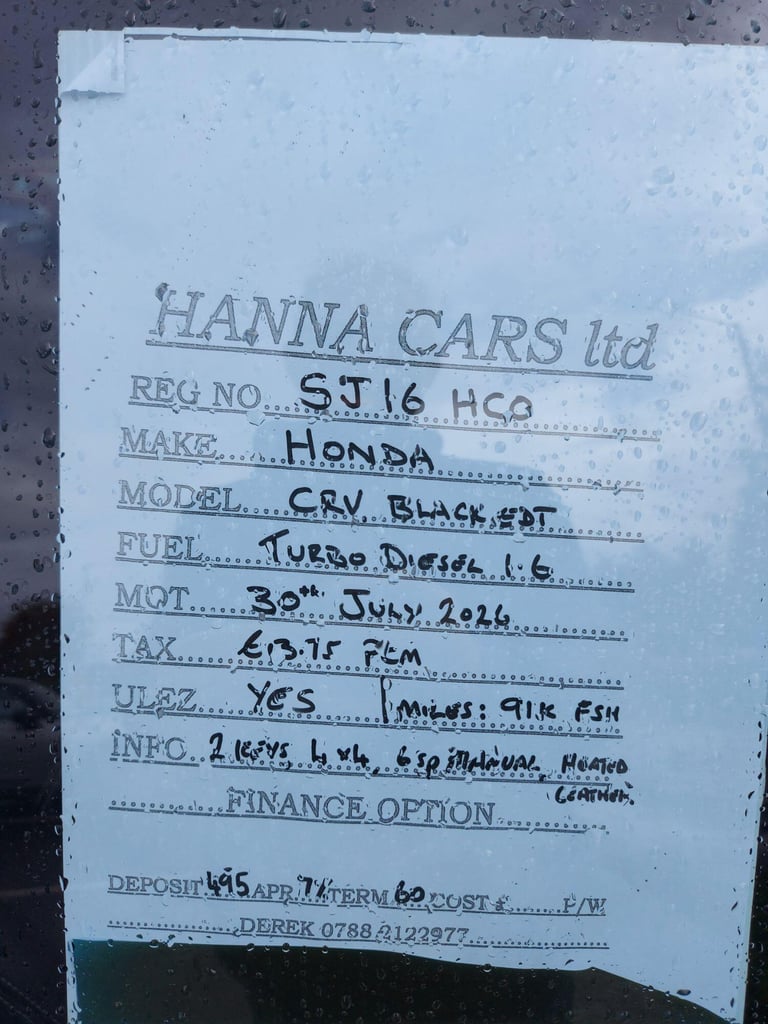 HANNA CARS ltd
REG NO SJ16 HCO
MAKE HONDA
MODEL CRV BLACK EDT
FUEL TURBO DIESEL 1.6
MOT 30th July 2026
TAX £13.75 PCM
ULEZ YES MILES: 91K FSH
INFO 2 KEYS, 4x4, 6 SP MANUAL, HEATED
LEATHER.
FINANCE OPTION
DEPOSIT 495 APR 7% TERM 60 COST £ P/W
DEREK 0788 2122977